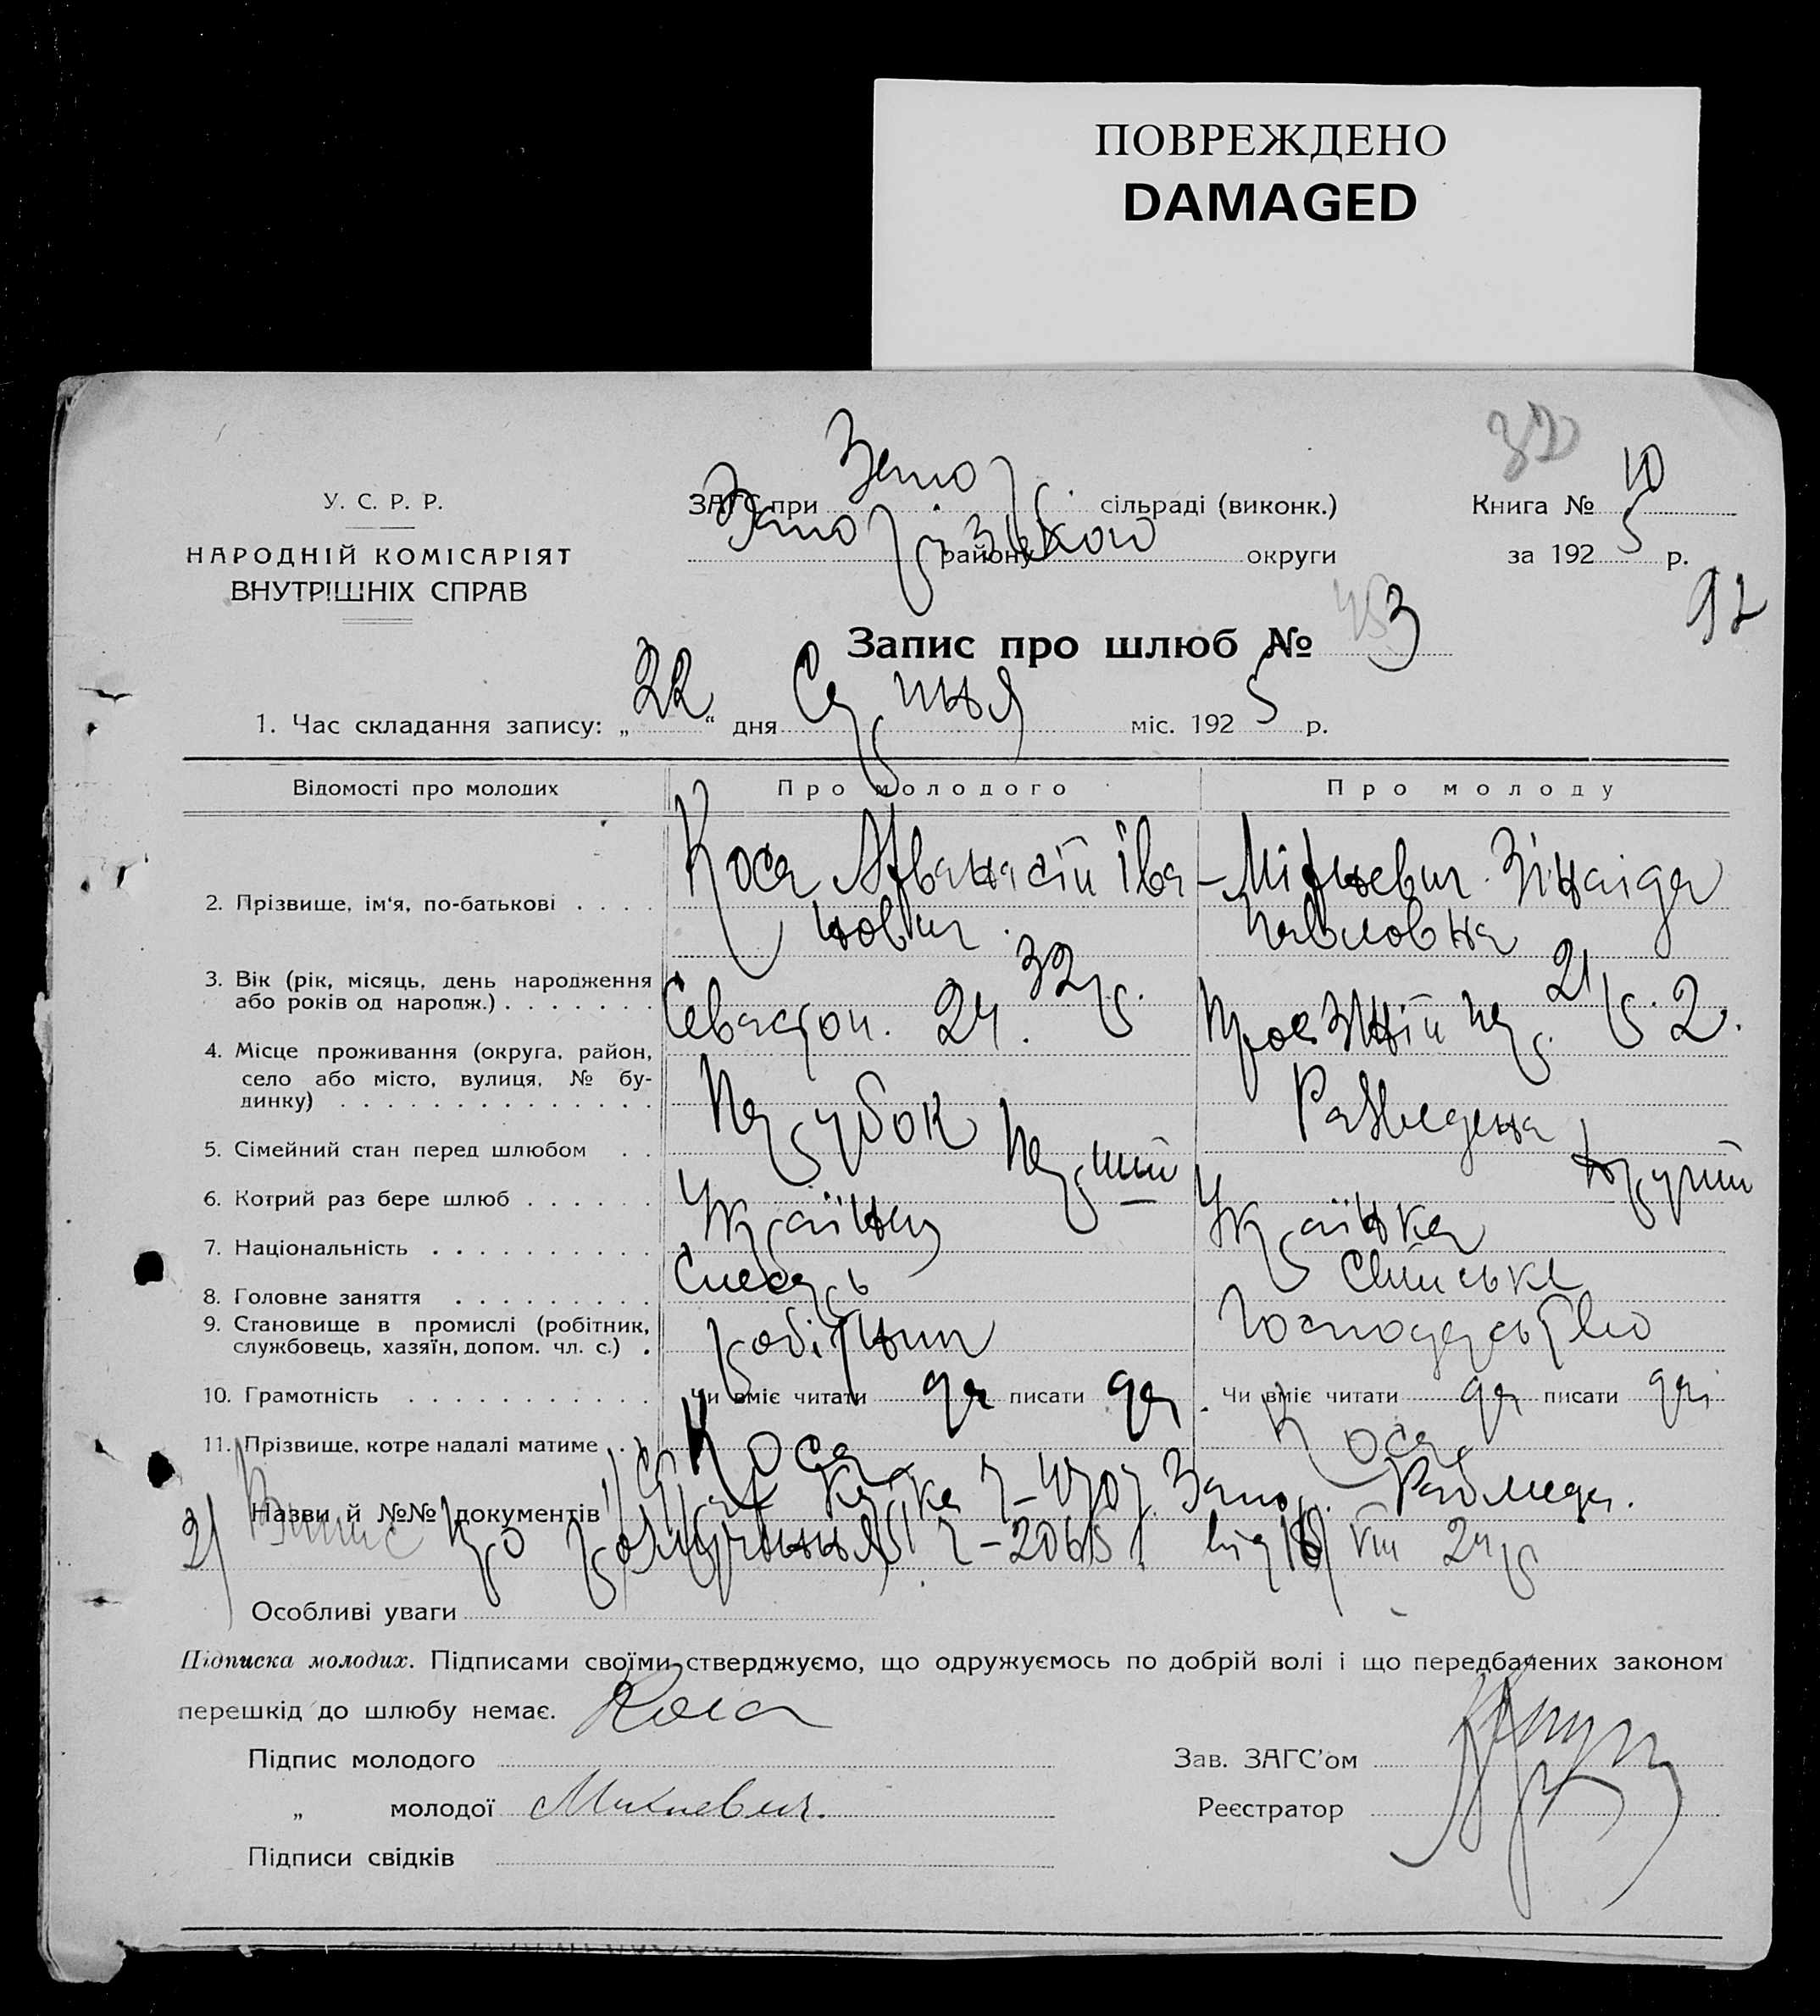 ПОВРЕЖДЕНО
DAMAGED
У. С. Р. Р.
НАРОДНІЙ КОМІСАРІЯТ
ВНУТРІШНІХ СПРАВ
ЗАГС при Запор. сільраді (виконк.)
Запорізькою району округи
Книга № 10
за 1925 р.
92
Запис про шлюб № 3
1. Час складання запису: „22“ дня Серпня міс. 1925 р.
Відомості про молодих Про молодого Про молоду
2. Прізвище, ім'я, по-батькові . . . . Коса Афанасій Іва- Міхневич Зінаіда
нович Павловна
3. Вік (рік, місяць, день народження
або років од народж.) . . . . . . . 32 р. 21 р.
4. Місце проживання (округа, район,
село або місто, вулиця, № бу-
динку) . . . . . . . . . . . . . . Севастоп. 24. Проезжій пер. 2.
5. Сімейний стан перед шлюбом . . Парубок Разведена
6. Котрий раз бере шлюб . . . . . . Перший другий
7. Національність . . . . . . . . . . Українец Українка
8. Головне заняття . . . . . . . . . Слесарь Сільське
9. Становище в промислі (робітник,
службовець, хазяїн, допом. чл. с.) . робітник Господарство
10. Грамотність . . . . . . . . . . . Чи вміє читати да писати да Чи вміє читати да писати да
11. Прізвище, котре надалі матиме . . Коса Коса
Назви й №№ документів 1) картка ч-4707 Запор.
2) Випис про розлучення ч-2065 від 18/VIII 24 р
Особливі уваги
Підписка молодих. Підписами своїми стверджуємо, що одружуємось по добрій волі і що передбачених законом
перешкід до шлюбу немає.
Підпис молодого Коса
„ молодої Михневич.
Підписи свідків
Зав. ЗАГС'ом
Реєстратор